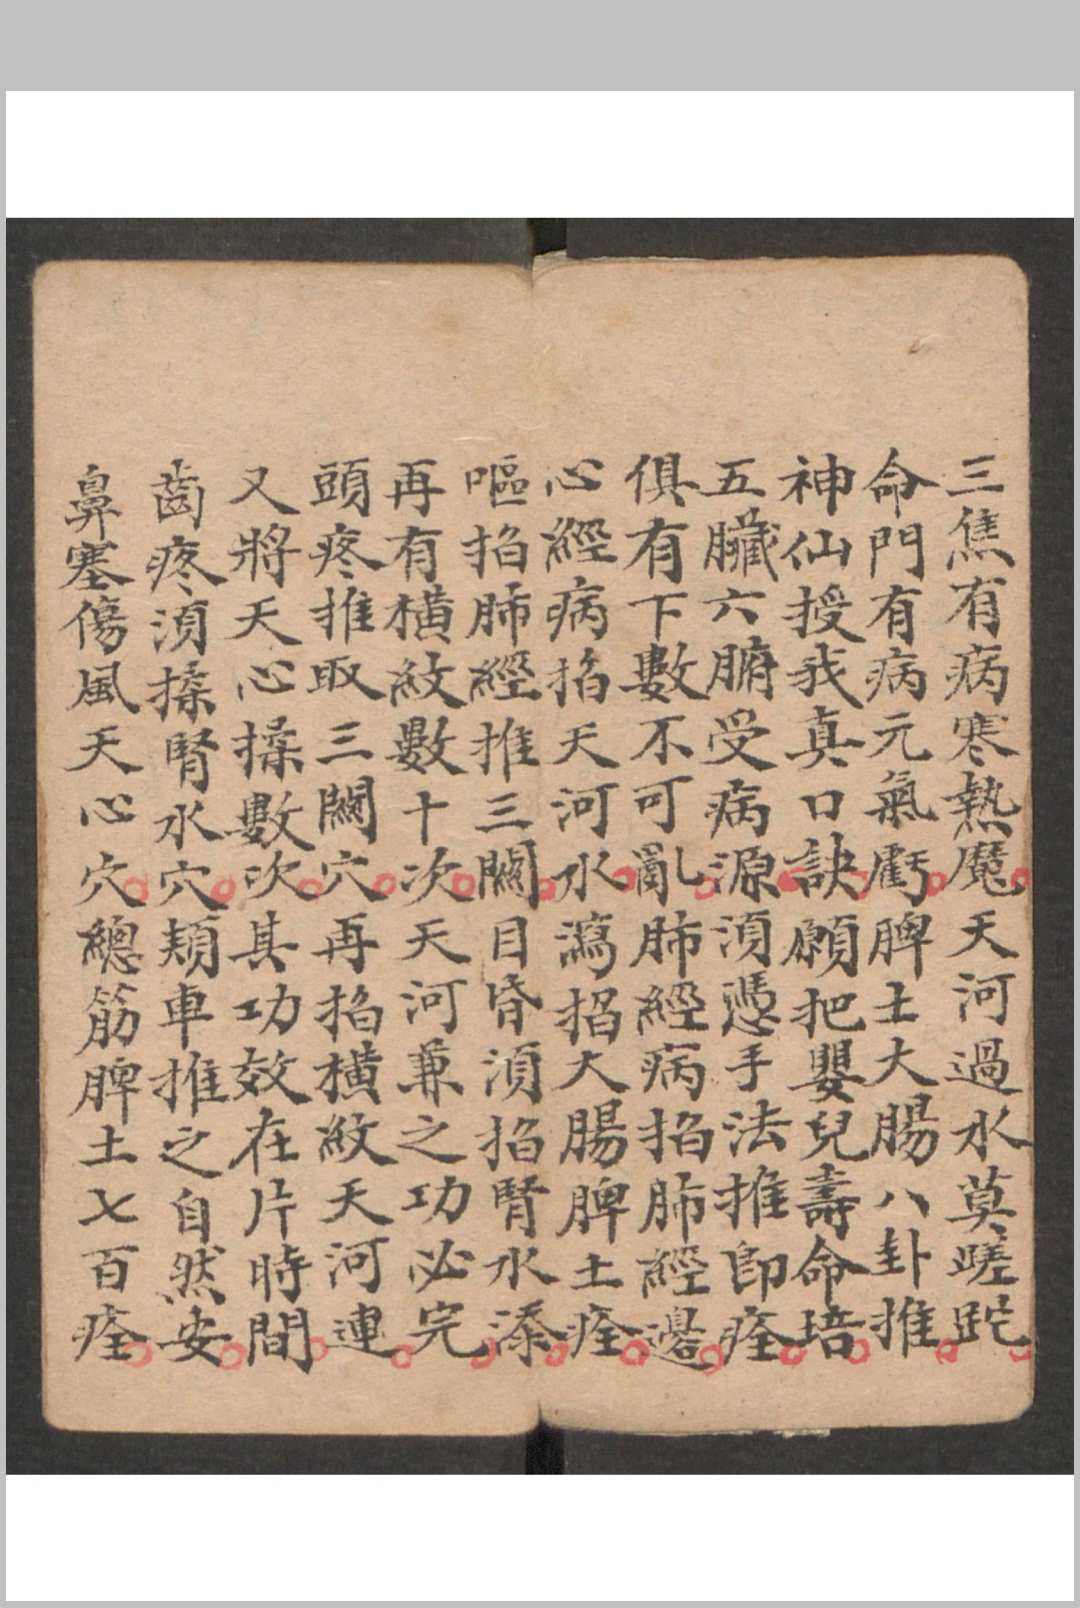 三焦有病寒熱魔天河過水莫蹉跎
命門有病元氣虧脾土大腸八卦推
神仙授我真口訣願把嬰兒壽命培
五臟六腑受病源須憑手法推即痊
俱有下數不可亂肺經病掐肺經邊
心經病掐天河水瀉掐大腸脾土痊
嘔掐肺經推三關目昏須掐腎水添
再有橫紋數十次天河兼之功必完
頭疼推取三關穴再掐橫紋天河連
又將天心揉數次其功效在片時間
齒疼須揉腎水穴頰車推之自然安
鼻塞傷風天心穴總筋脾土七百痊